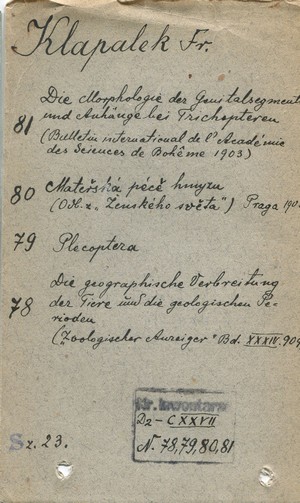 Klapalek Fr.
Die Morphologie der Genitalsegmente
81 und Anhänge bei Trichopteren
(Bulletin international de l'Académie
des Sciences de Bohême 1903)
80 Mateřská péčě hmyzu
(Otisk z „Ženského světa") Praga 190
79 Plecoptera
Die geographische Verbreitung
78 der Tiere und die geologischen Pe-
rioden
(Zoologischer Anzeiger" Bd. XXXIV. 909
Nr. inwentarza
D2 - CXXVII
N. 78,79,80,81
Sz. 23.